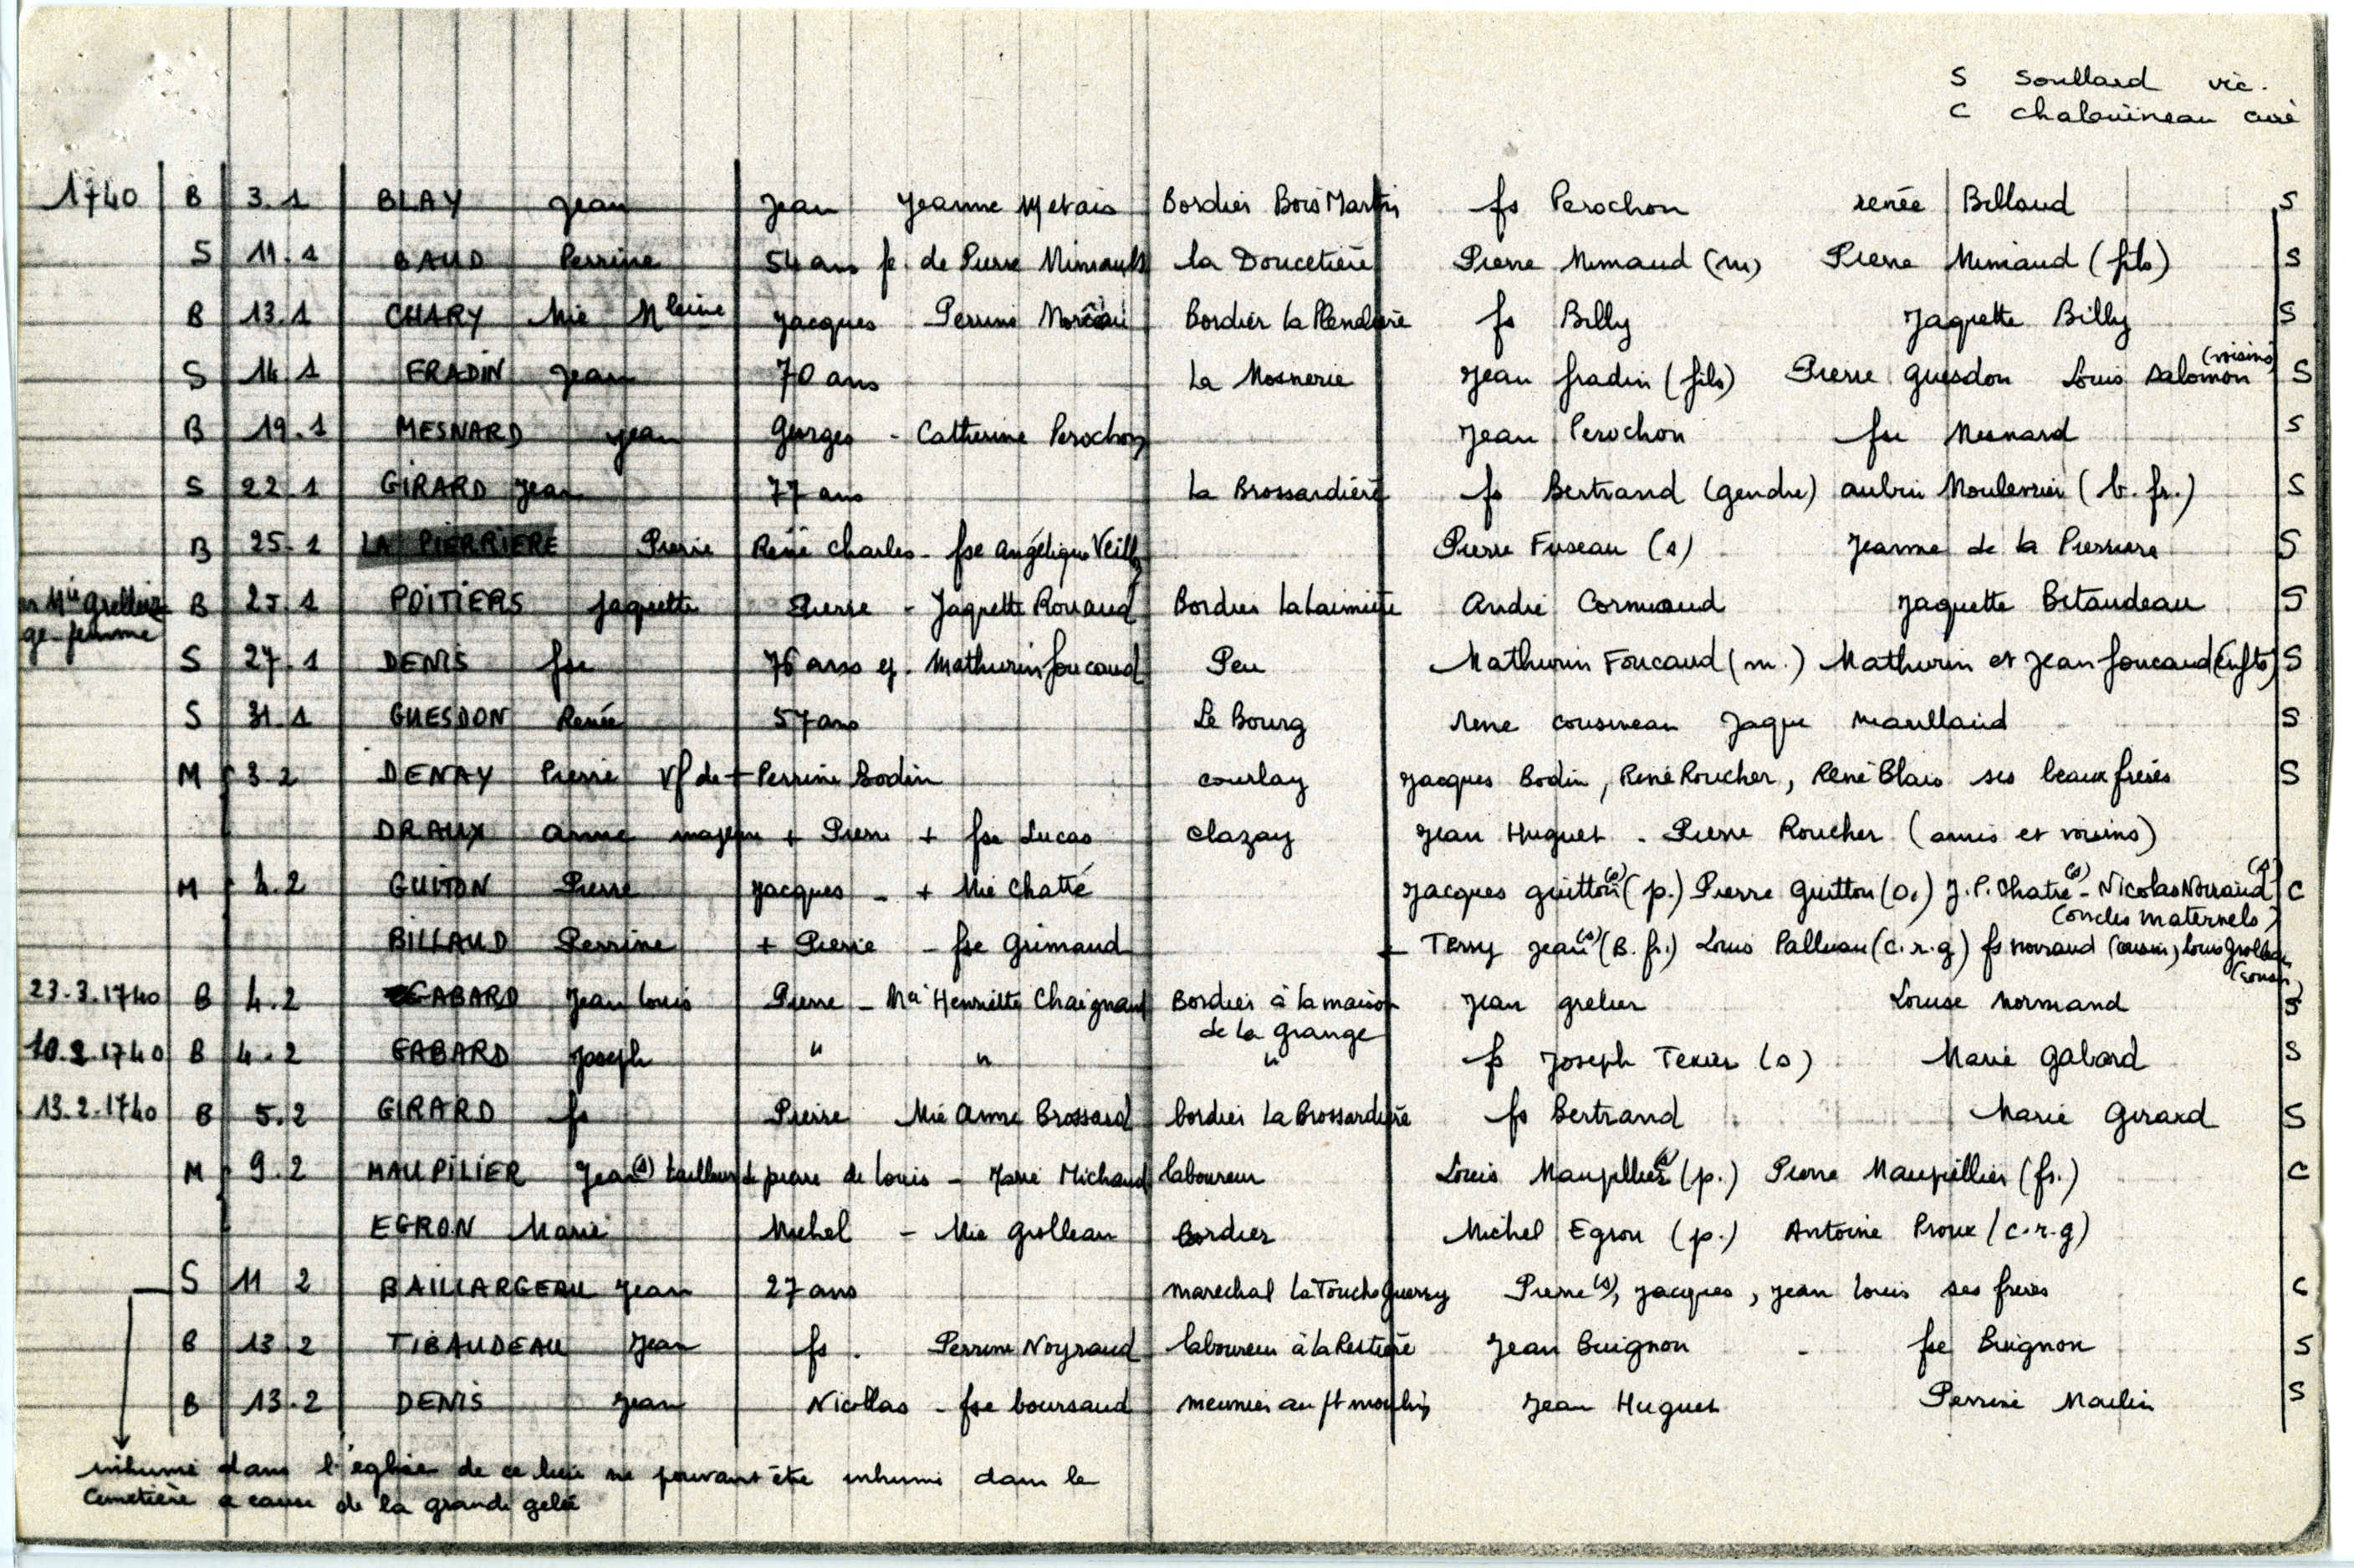 S Soullard vic.
C Chalouineau curé
1740 B 3.1 BLAY Jean Jean Jeanne Metais Bordier Bois Martin fs Perochon renée Billaud S
S 11.1 BAUD Perrine 54 ans fe. de Pierre Mimault la Doucetière Pierre Mimaud (m) Pierre Mimaud (fils) S
B 13.1 CHARY Mie Mleine Jacques Perrine Bordier la Plendière fs Billy Jaquette Billy S
(voisins)
S 14.1 FRADIN Jean 70 ans La Mosnerie Jean fradin (fils) Pierre Guesdon Louis Salomon S
B 19.1 MESNARD Jean Georges - Catherine Perochon Jean Perochon fse Mesnard S
S 22.1 GIRARD Jean 77 ans la Brossardière fs Bertrand (gendre) aubin Moulevrier (b. fr.) S
B 25.1 LA PIERRIERE Pierre René Charles - fse Angélique Veill Pierre Fuseau (s) Jeanne de la Pierriere S
Mie Grellier B 25.1 POITIERS Jaquette Pierre - Jaquette Rouaud Bordier la André Cormuaud Jaquette Bitaudeau S
ge-femme
S 27.1 DENIS fse 76 ans ep. Mathurin foucaud Peu Mathurin Foucaud (m.) Mathurin et Jean foucaud (enfts) S
S 31.1 GUESDON Renée 57 ans Le Bourg rene cousineau Jaque maullaud S
M 3.2 DENAY Pierre Vf de + Perrine Bodin courlay Jacques Bodin, René Roucher, René Blais ses beaux frères S
DRAUX anne majeure + Pierre + fse Lucas clazay Jean Huguet - Pierre Roucher (amis et voisins)
M 4.2 GUITON Pierre Jacques - + Mie Chatié Jacques guitton (s) (p.) Pierre Guitton (o.) J.P. Chatié (s) - Nicolas Norraud (s) C
(oncles maternels)
BILLAUD Perrine + Pierre - fse Grimaud Terry Jean (s) (B. fr.) Louis Palluau (c.r.g) fs norraud (cousin) Louis Grolleau
(cousin)
23.3.1740 B 4.2 GABARD Jean Louis Pierre - Mie Henriette Chaignaud Bordier à la maison Jean grelier Louise Normand S
de la grange
10.2.1740 B 4.2 GABARD Joseph " " " fs Joseph Texier (s) Marie Gabard S
13.2.1740 B 5.2 GIRARD fs Pierre Mie Anne Brossard bordier La Brossardière fs Bertrand Marie Girard S
M 9.2 MAUPILIER Jean (s) tailleur de pierre de Louis - Marie Michaud laboureur Louis Maupillier (s) (p.) Pierre Maupillier (fr.) C
EGRON Marie Michel - Mie Grolleau Bordier Michel Egron (p.) Antoine Proux (c.r.g)
S 11 2 BAILLARGEAU Jean 27 ans marechal La Touche Guerry Pierre (s), Jacques, Jean Louis ses freres C
B 13.2 TIBAUDEAU Jean fs. Perrine Noyraud laboureur à la Restière Jean Buignon - fse Buignon S
B 13.2 DENIS Jean Nicollas - fse boursaud meunier au pt moulin Jean Huguet Perrine Moulin S
inhumé dans l'église de ce lieu ne pouvant être inhumé dans le
Cimetière a cause de la grande gelée